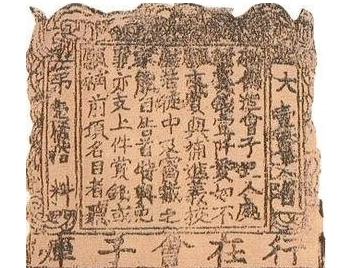 大壹貫文省
敕偽造會子犯人處
斬賞錢壹阡貫如不
願支賞與補進義校
尉若徒中及窩藏之
家能自告首特與免
罪亦支上件賞錢或
願補前項名目者聽
第料
行在會子庫